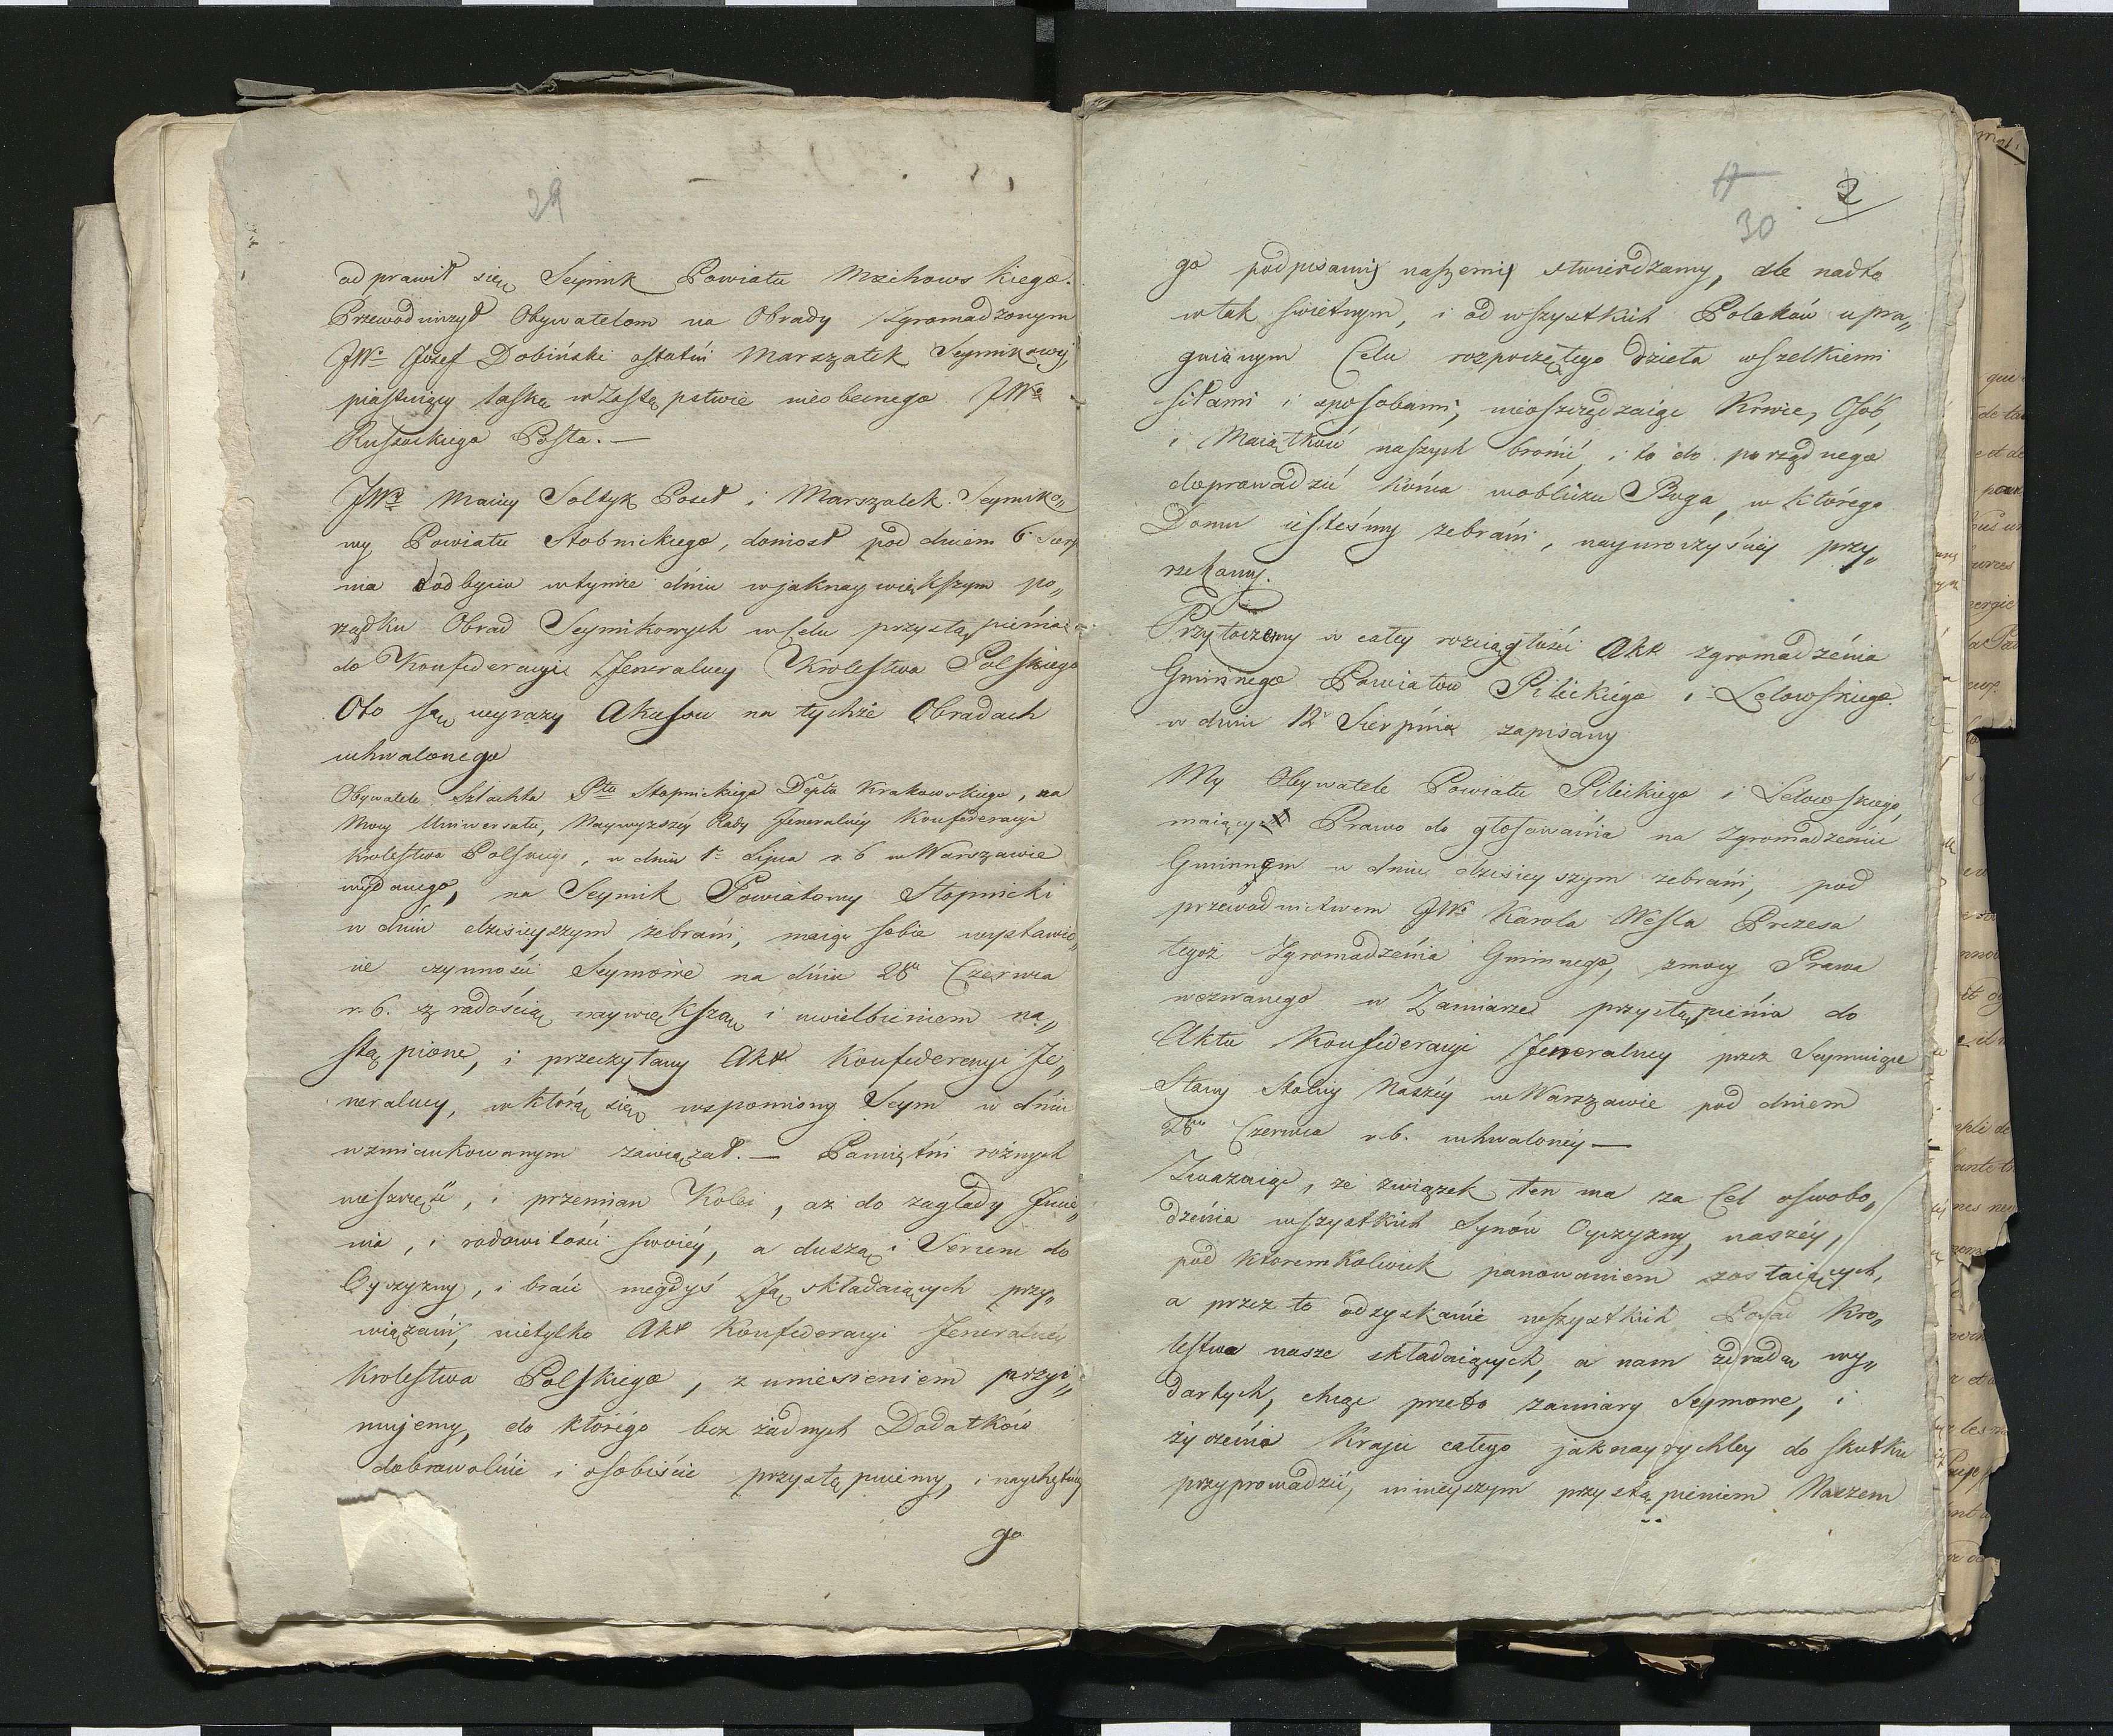 29
odprawił się Seymik Powiatu Miechowskiego.
Przewodniczył Obywatelom na Obrady Zgromadzonym
JWy Józef Dobiński ostatni Marszałek Seymikowy,
piastuiący laskę w Zastępstwie nieobecnego JWo
Russockiego Posła. —
JWy Maciey Sołtyk Poseł i Marszałek Seymiko„
wy Powiatu Stobnickiego, doniosł pod dniem 6 Sierp
nia o odbyciu w tymże dniu w jaknaywiększym po„
rządku Obrad Seymikowych w Celu przystąpienia
do Konfederacyi Jeneralney Krolestwa Polskiego
Oto są wyrazy Aktu na tychże Obradach
uchwalonego
Obywatele Szlachta Ptu Stopnickiego Deptu Krakowskiego, na
Mocy Uniwersału, Naywyzszéy Rady Jeneralnéy Konfederacyi
Krolestwa Polskiego, w dniu 1o Lipca r. b. w Warszawie
wydanego, na Seymik Powiatowy Stopnicki
w dniu dzisieyszym zebrani, maiąc sobie wystawio„
ne czynności Seymowe na dniu 28o Czerwca
r. b. z radością naywiększą i uwielbieniem na„
stąpione, i przeczytany Akt Konfederacyi Je„
neralney, w którą się wspomniony Seym w dniu
wzmiankowanym zawiązał. — Pamiętni rożnych
nieszczęść, i przemian Kolei, aż do zagłady Imie„
nia, i rodowitości swoiéy, a duszą i Sercem do
Oyczyzny, i braci niegdyś Ją składaiących przy„
wiązani, nietylko Akt Konfederacyi Jeneralnéy
Krolestwa Polskiego, z uniesieniem przyi„
mujemy, do którégo bez żadnych Dodatków
dobrowolnie i osobiście przystępuiemy, i naychętniéy
go
30
2
go podpisami naszemi stwierdzamy, ale nadto
w tak swietnym, i od wszystkich Polaków upra„
gnionym Celu rozpoczętego dzieła wszelkiemi
siłami i sposobami, nieoszczędzaiąc Krwie, Osób,
i Maiątków naszych bronić, i to do porządnego
doprowadzić końca w obliczu Boga, w którego
Domu iesteśmy zebrani, nayuroczyściey przy„
rzekamy.
Przytoczemy w całey rozciągłości Akt zgromadzenia
Gminnego Powiatow Pilickiego i Lelowskiego.
w dniu 12 Sierpnia zapisany
My Obywatele Powiatu Pilickiego i Lelowskiego,
maiący Prawo do głosowania na Zgromadzeniu
Gminnym w dniu dzisieyszym zebrani, pod
przewodnictwem JWo Karola Wessla Prezesa
tegoż Zgromadzenia Gminnego, zmocy Prawa
wezwanego w Zamiarze przystąpienia do
Aktu Konfederacyi Jeneralney przez Seymuiące
Stany Stolicy Naszéy w Warszawie pod dniem
28o Czerwca r. b. uchwalonéy —
Zwazaiąc, ze związek ten ma za Cel oswobo„
dzenia wszystkich Synów Oyczyzny naszéy,
pod ktoremkolwiek panowaniem zostaiących,
a przez to odzyskanie wszystkich Posad Kro„
lestwo nasze składaiących, a nam zdradą wy„
dartych, chcąc przeto zamiary Seymowe, i
życzenia Kraju całego jaknayrychley do skutku
przyprowadzić, ninieyszym przystąpieniem Naszem